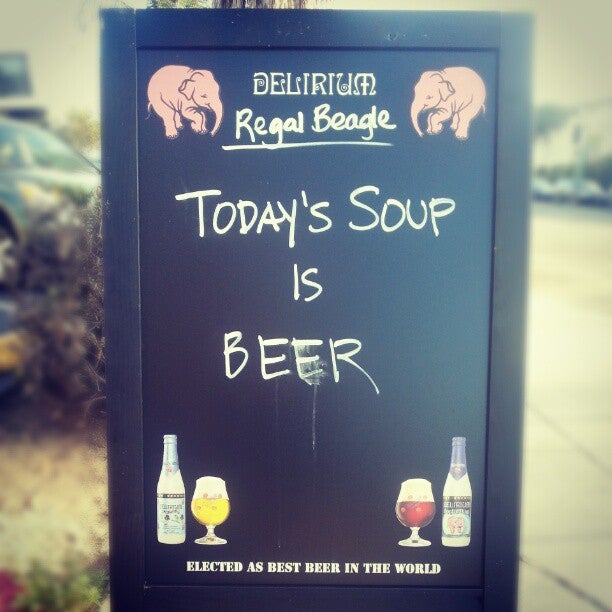 DELIRIUM
Regal Beagle
TODAY'S SOUP
IS
BEER
ELECTED AS BEST BEER IN THE WORLD